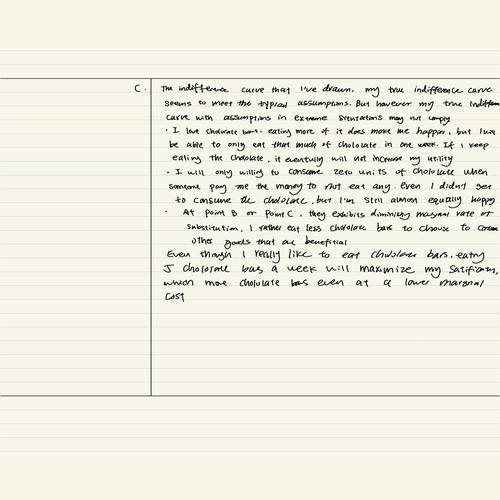 C. The indifference curve that I've drawn, my true indifference curve
seems to meet the typical assumptions. But however my true
curve with assumptions in extreme situtations may not comply
· I love chocolate bars. eating more of it does make me happier, but I
be able to only eat that much of chocolate in one week. If I keep
eating the chocolate, it eventually will not increase my utility
· I will only willing to consume zero units of chocolate when
someone pay me the money to not eat any. even I didn't get
to consume the chocolate, but I'm still almost equally happy
· At point B or Point C, they exhibits diminishing marginal rate of
substitution, I rather eat less chocolate bars to choose to
other goods that are benefitial
Even though I really like to eat chocolate bars, eating
5 chocolate bars a week will maximize my
which more chocolate bars even at a lower marginal
cost